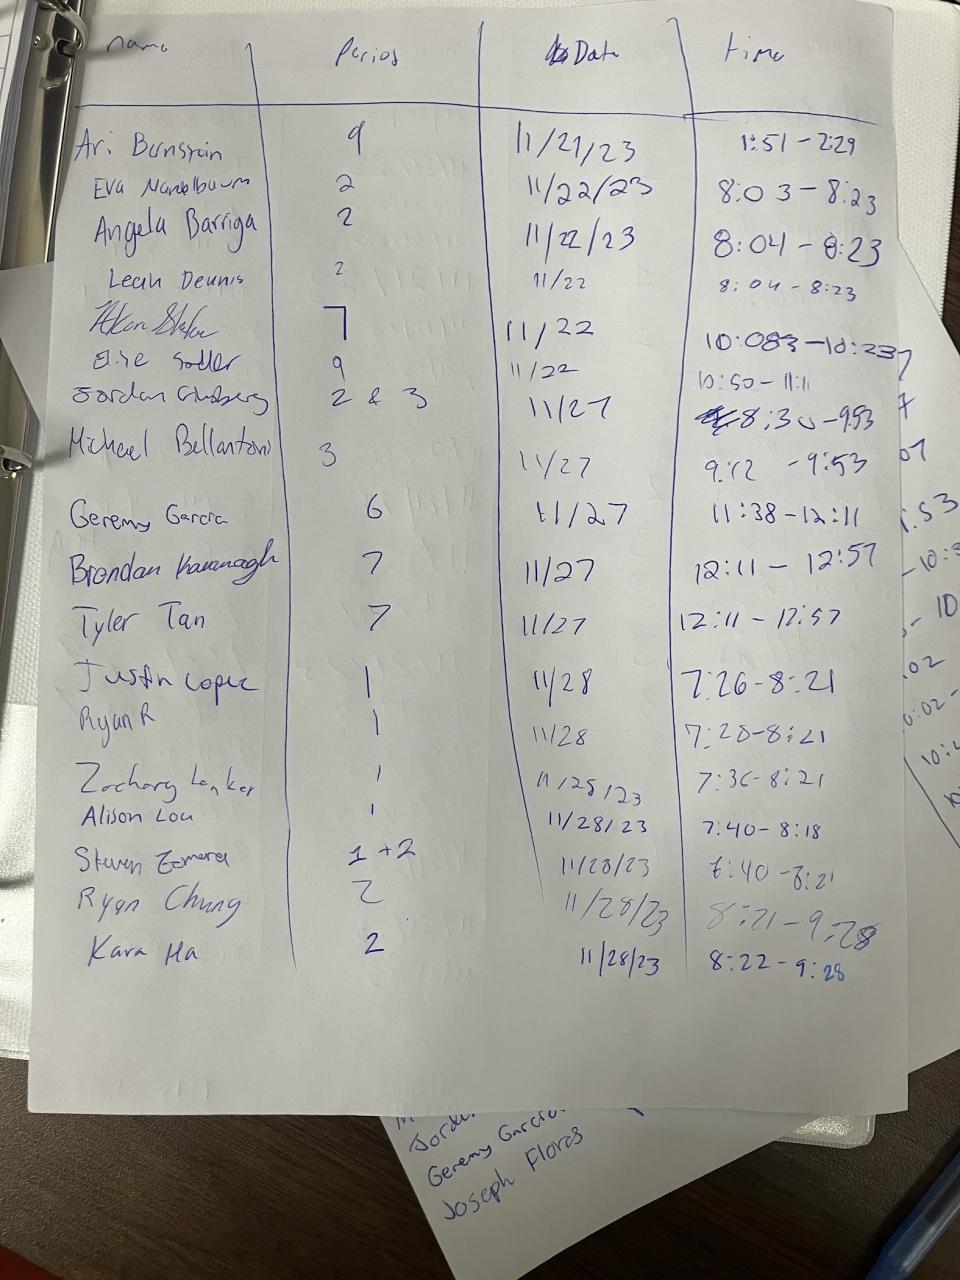 name Period Date time
Ari Bernstein 9 11/21/23 1:51 - 2:29
Eva Mandelbaum 2 11/22/23 8:03 - 8:23
Angela Barriga 2 11/22/23 8:04 - 8:23
Leah Dennis 2 11/22 8:04 - 8:23
7 11/22
9 11/22 10:50 - 11:11
Jordan 2 & 3 11/27 8:30 - 9:53
Michael Bellantoni 3 11/27 9:12 - 9:53
Geremy Garcia 6 11/27 11:38 - 12:11
Brendan Kavanagh 7 11/27 12:11 - 12:57
Tyler Tan 7 11/27 12:11 - 12:57
Justin Lopez 1 11/28 7:26 - 8:21
Ryan R 1 11/28 7:28 - 8:21
Zachary 1 11/28/23 7:36 - 8:21
Alison Lou 1 11/28/23 7:40 - 8:18
Steven 1 + 2 11/28/23 7:40 - 8:21
Ryan Chung 2 11/28/23 8:21 - 9:28
Kara Ha 2 11/28/23 8:22 - 9:28
Geremy Garcia
Joseph Flores